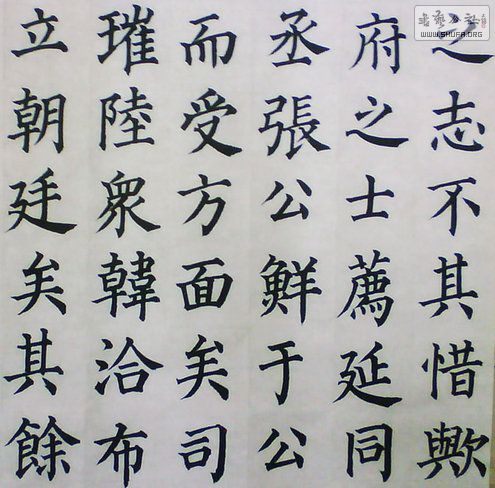 之志不其惜歟
府之士薦延同
丞張公鮮于公
而受方面矣司
璀陸衆韓洽布
立朝廷矣其餘
WWW.SHUFA.ORG